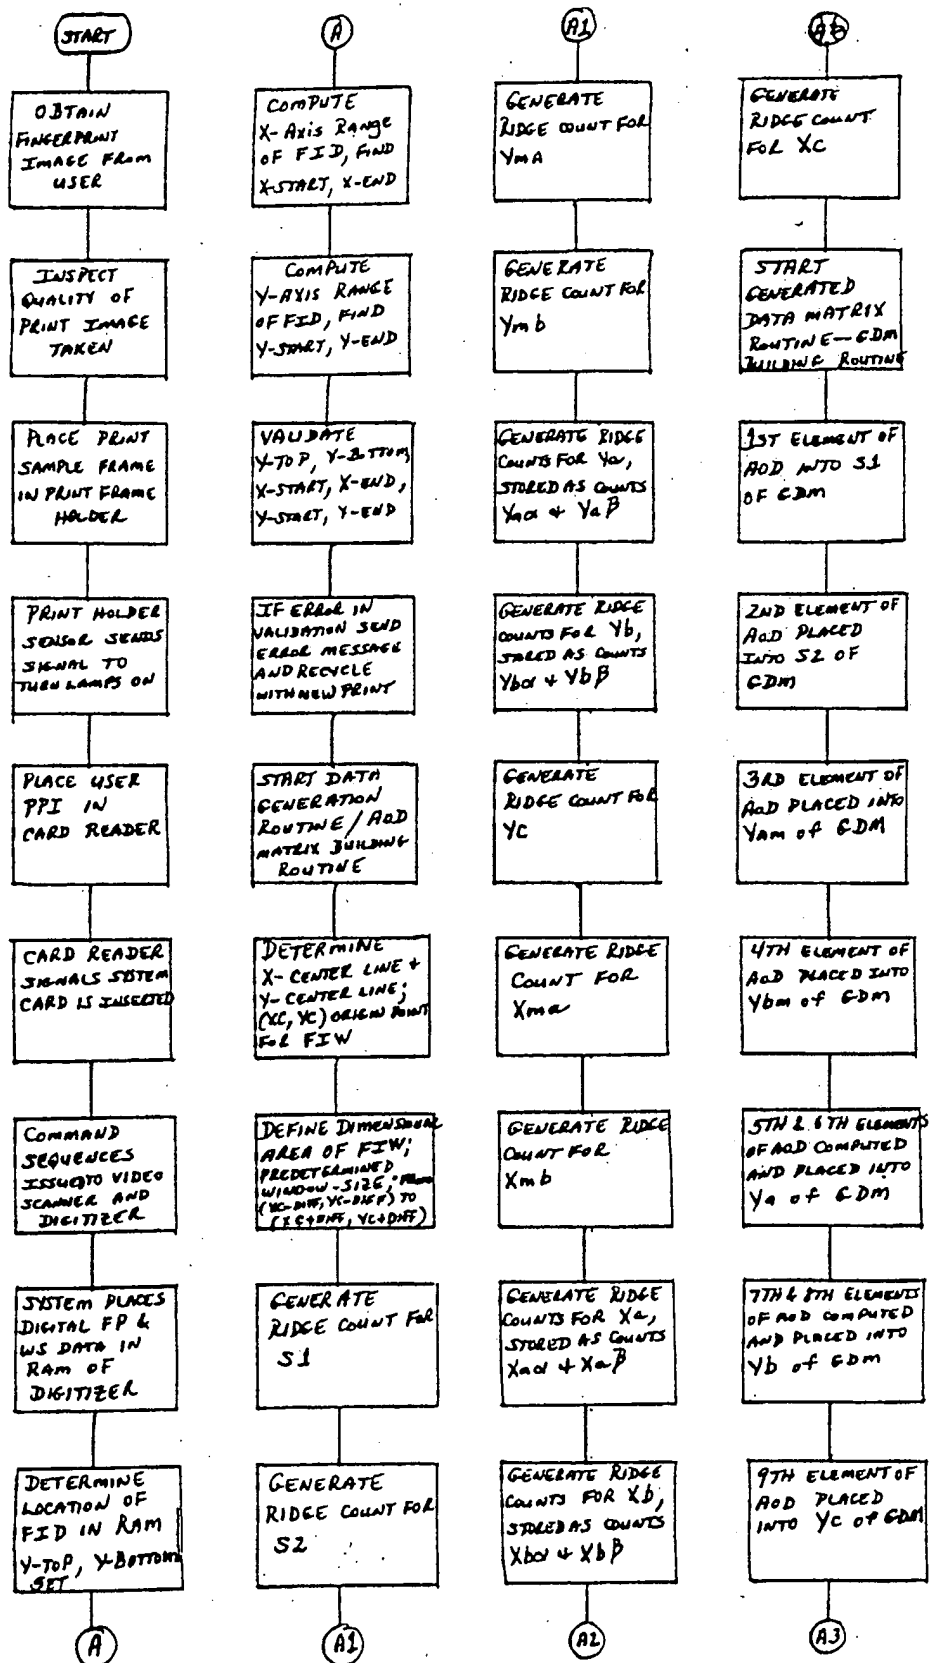 START
OBTAIN
FINGERPRINT
IMAGE FROM
USER
INSPECT
QUALITY OF
PRINT IMAGE
TAKEN
PLACE PRINT
SAMPLE FRAME
IN PRINT FRAME
HOLDER
PRINT HOLDER
SENSOR SENDS
SIGNAL TO
TURN LAMPS ON
PLACE USER
PPI IN
CARD READER
CARD READER
SIGNALS SYSTEM
CARD IS INSERTED
COMMAND
SEQUENCES
ISSUED TO VIDEO
SCANNER AND
DIGITIZER
SYSTEM PLACES
DIGITAL FP &
WS DATA IN
RAM OF
DIGITIZER
DETERMINE
LOCATION OF
FID IN RAM
Y-TOP, Y-BOTTOM
SET
A
A
COMPUTE
X-Axis Range
OF FID, FIND
X-START, X-END
COMPUTE
Y-AXIS RANGE
OF FID, FIND
Y-START, Y-END
VALIDATE
Y-TOP, Y-BOTTOM,
X-START, X-END,
Y-START, Y-END
IF ERROR IN
VALIDATION SEND
ERROR MESSAGE
AND RECYCLE
WITH NEW PRINT
START DATA
GENERATION
ROUTINE / AOD
MATRIX BUILDING
ROUTINE
DETERMINE
X-CENTER LINE +
Y-CENTER LINE;
(XC, YC) ORIGIN POINT
FOR FIW
DEFINE DIMENSIONAL
AREA OF FIW;
PREDETERMINED
WINDOW-SIZE, FROM
(XC-DIFF, YC-DIFF) TO
(XC+DIFF, YC+DIFF)
GENERATE
RIDGE COUNT FOR
S1
GENERATE
RIDGE COUNT FOR
S2
A1
A1
GENERATE
RIDGE COUNT FOR
YmA
GENERATE
RIDGE COUNT FOR
Ymb
GENERATE RIDGE
COUNTS FOR Ya,
STORED AS COUNTS
Yaα + Yaβ
GENERATE RIDGE
COUNTS FOR Yb,
STORED AS COUNTS
Ybα + Ybβ
GENERATE
RIDGE COUNT FOR
YC
GENERATE RIDGE
COUNT FOR
Xma
GENERATE RIDGE
COUNT FOR
Xmb
GENERATE RIDGE
COUNTS FOR Xa,
STORED AS COUNTS
Xaα + Xaβ
GENERATE RIDGE
COUNTS FOR Xb,
STORED AS COUNTS
Xbα + Xbβ
A2
GENERATE
RIDGE COUNT
FOR XC
START
GENERATED
DATA MATRIX
ROUTINE—GDM
BUILDING ROUTINE
1ST ELEMENT OF
AOD INTO S1
OF GDM
2ND ELEMENT OF
AOD PLACED
INTO S2 OF
GDM
3RD ELEMENT OF
AOD PLACED INTO
YAM OF GDM
4TH ELEMENT OF
AOD PLACED INTO
Ybm of GDM
5TH & 6TH ELEMENTS
OF AOD COMPUTED
AND PLACED INTO
Ya of GDM
7TH & 8TH ELEMENTS
OF AOD COMPUTED
AND PLACED INTO
Yb of GDM
9TH ELEMENT OF
AOD PLACED
INTO YC OF GDM
A3